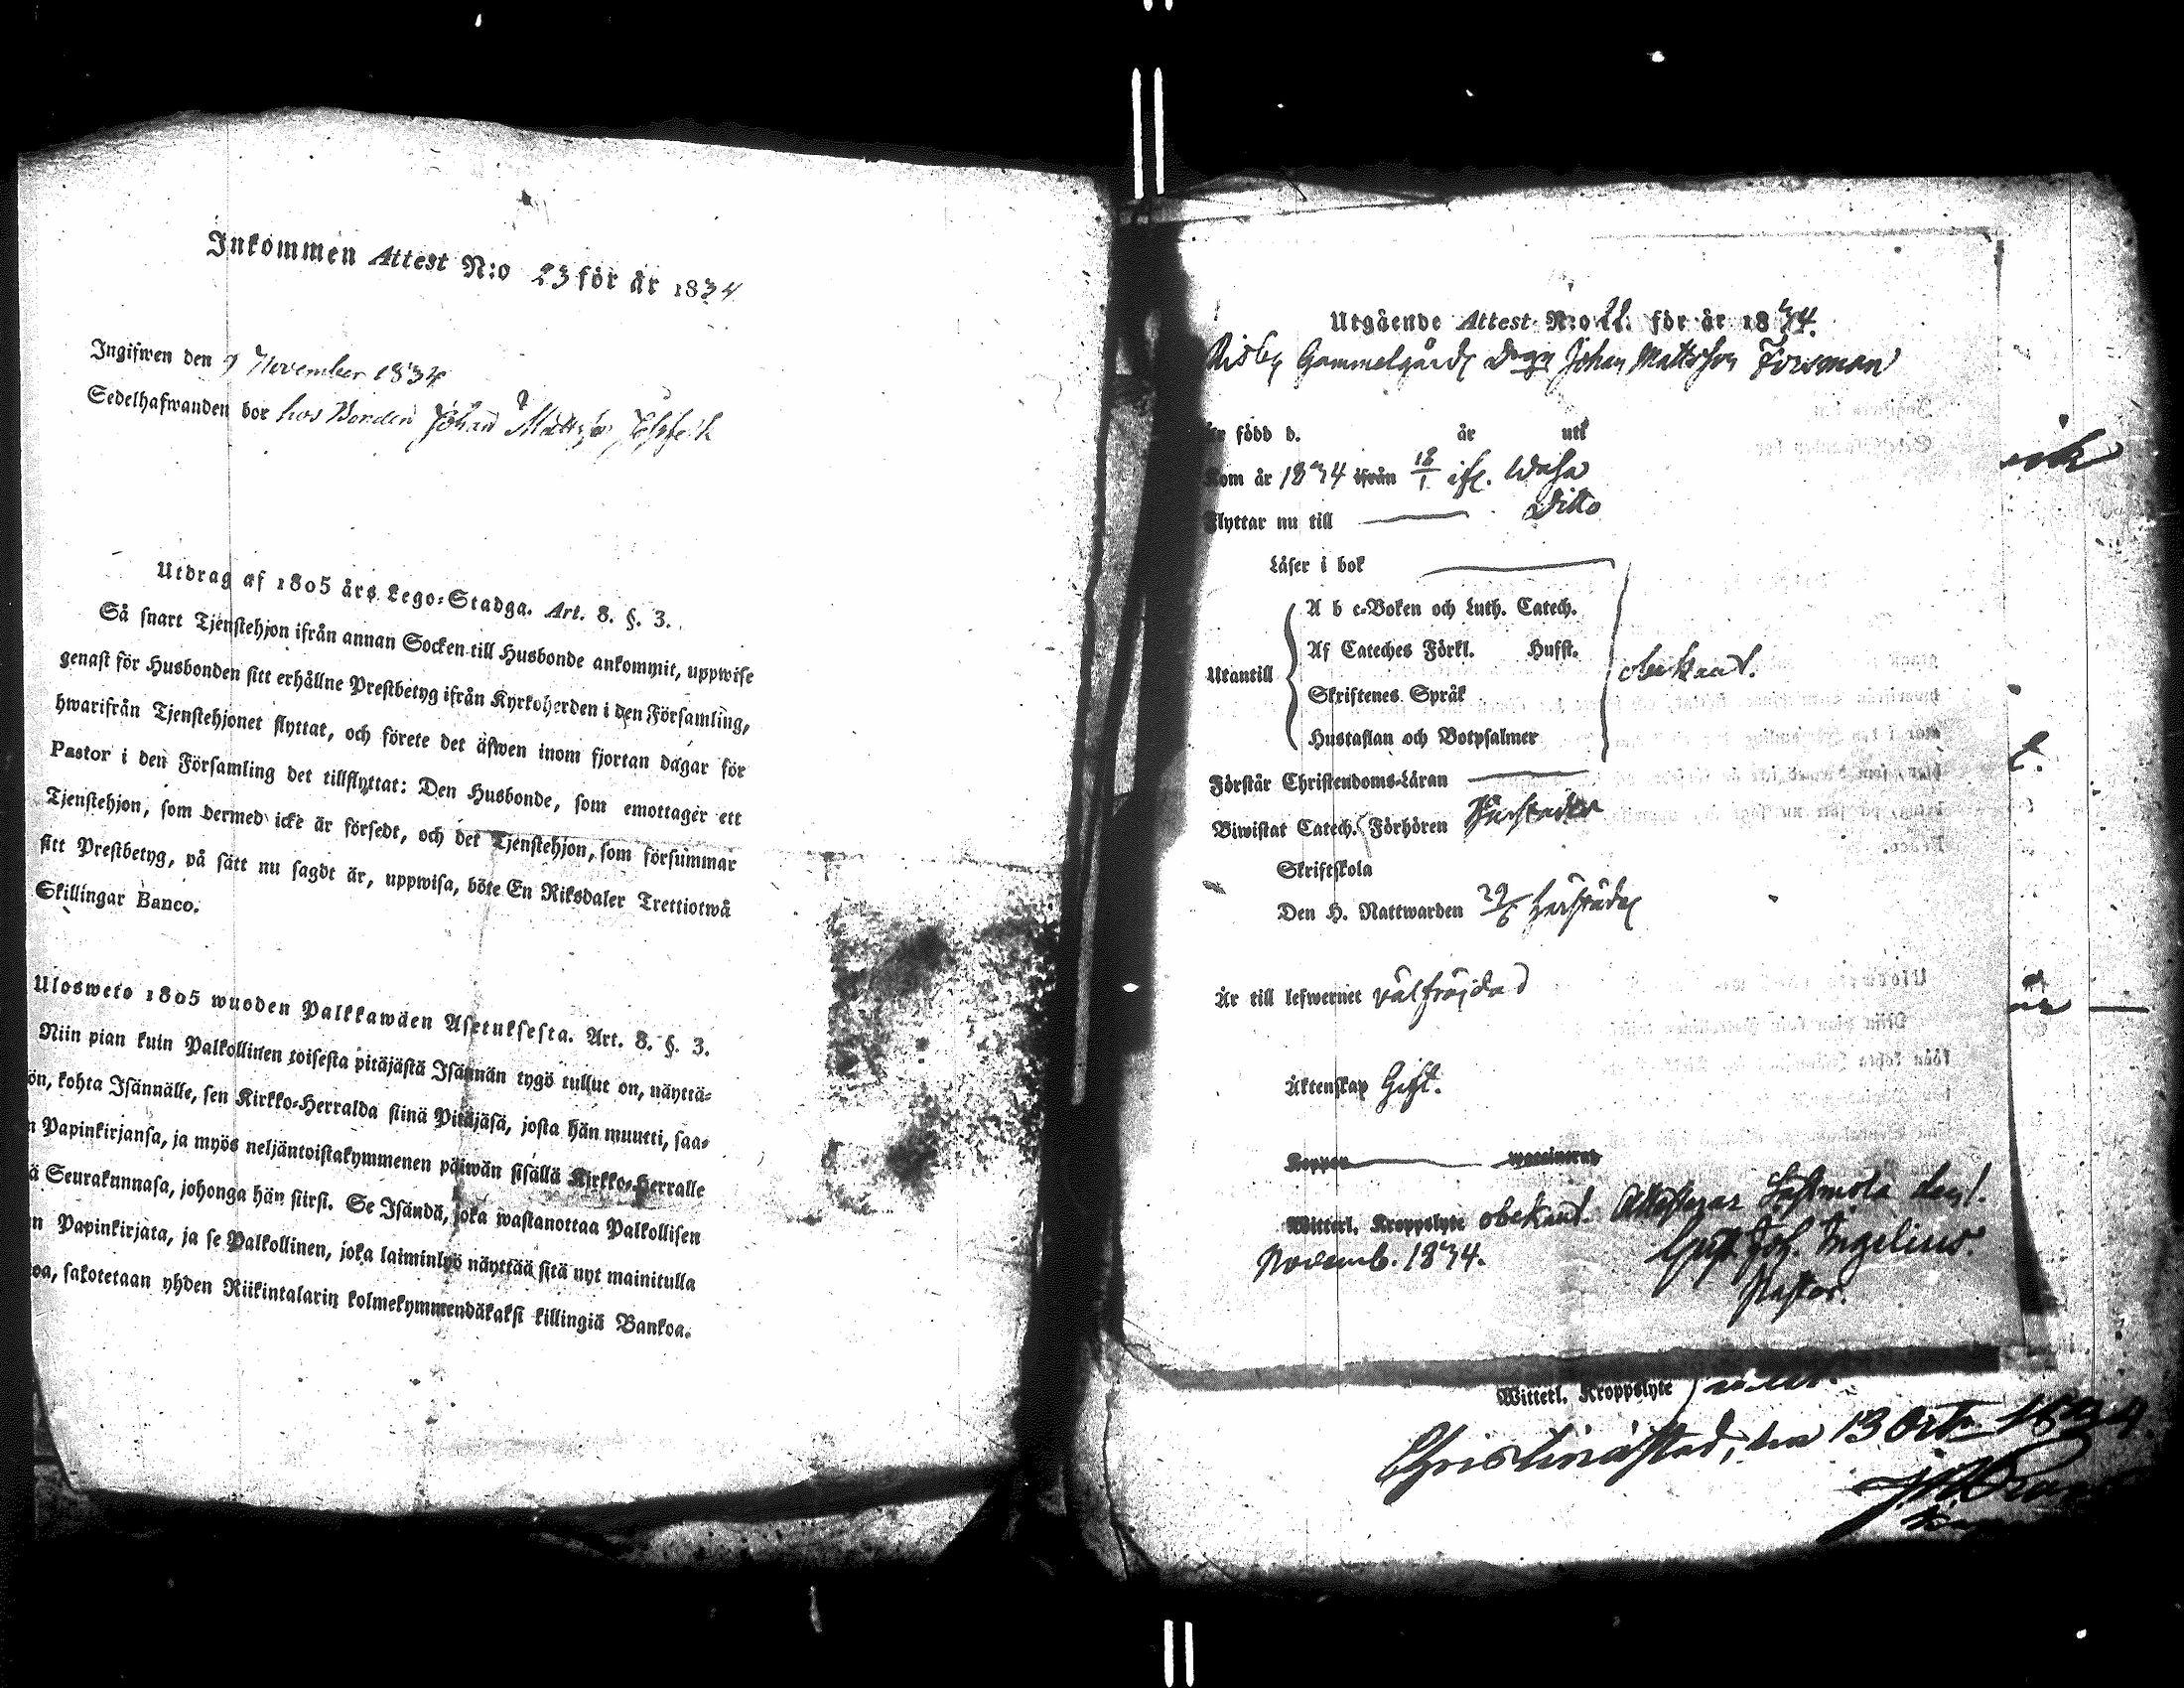 Inkommen Attest N:o 23 för år 1834
Ingifwen den 9 November 1834
Sedelhafwanden bor hos Bonden Johan Mattsson
Utdrag af 1805 års Lego-Stadga. Art. 8. §. 3.
Så snart Tjenstehjon ifrån annan Socken till Husbonde ankommit, uppwise
genast för Husbonden sitt erhållne Prestbetyg ifrån Kyrkoherden i den Församling,
hwarifrån Tjenstehjonet flyttat, och förete det äfwen inom fjortan dagar för
Pastor i den Församling det tillflyttat: Den Husbonde, som emottager ett
Tjenstehjon, som dermed icke är försedt, och det Tjenstehjon, som försummar
sitt Prestbetyg, på sätt nu sagdt är, uppwisa, böte En Riksdaler Trettiotwå
Skillingar Banco.
Ulosweto 1805 wuoden Palkkawäen Asetuksesta. Art. 8. §. 3.
Niin pian kuin Palkollinen toisesta pitäjästä Isännän tygö tullut on, näyttä-
ön, kohta Isännälle, sen Kirkko-Herralda siinä Pitäjäsä, josta hän muutti, saa-
n Papinkirjansa, ja myös neljäntoistakymmenen päiwän sisällä Kirkko-Herralle
ä Seurakunnasa, johonga hän siirsi. Se Isändä, joka wastanottaa Palkollisen
n Papinkirjata, ja se Palkollinen, joka laiminlyö näyttää sitä nyt mainitulla
oa, sakotetaan yhden Riikintalarin kolmekymmendäkaksi killingiä Bankoa.
Utgående Attest N:o 22. för år 1834.
Risby Gammelgårds Johan Mattsson Forsman
är född d. år uti
Kom år 1834 ifrån 18/1 ifr. Wasa
Flyttar nu till Ditto
Läser i bok
A b c-Boken och Luth. Catech.
Af Cateches Förkl. Husst.
Utantill obekant.
Skriftenes Språk
Hustaflan och Botpsalmer
Förstår Christendoms-Läran
Biwistat Catech. Förhören Härstädes
Skriftskola
Den H. Nattwarden 29/6 härstädes
Är till lefwernet välfräjdad
Äktenskap Gift.
Koppor waccinerad
Witterl. Kroppslyte obekant. Attesteras Lästmola den 1.
Novemb. 1834. Gust. Joh. Ingelius.
Pastor.
Witterl. Kroppslyte
Christinæstad, den 13 Octr 1834.